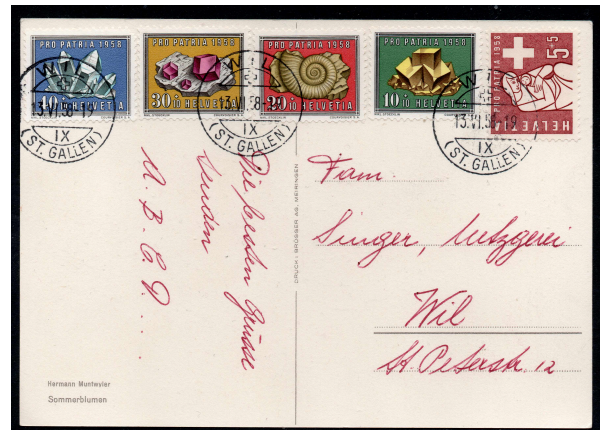 PRO PATRIA 1958
40+10 HELVETIA
PRO PATRIA 1958
30+10 HELVETIA
PRO PATRIA 1958
20+10 HELVETIA
PRO PATRIA 1958
10+10 HELVETIA
5+5
PRO PATRIA 1958
HELVETIA
WIL
13.VI.58-19
IX
(ST. GALLEN)
WIL
13.VI.58-19
IX
(ST. GALLEN)
WIL
13.VI.58-19
IX
(ST. GALLEN)
Die besten Grüsse
senden
A. B. C. D. ...
DRUCK: BROSSER AG. MEIRINGEN
Fam.
Singer, Metzgerei
Wil
St. Peterstr. 12
Hermann Muntwyler
Sommerblumen